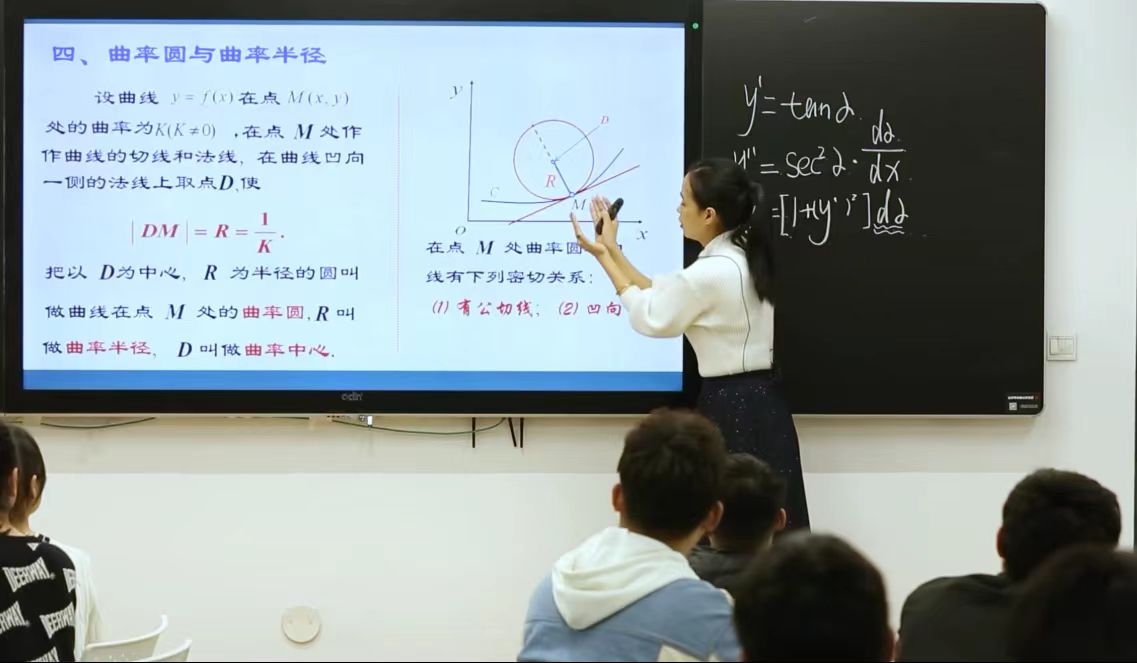 四、曲率圆与曲率半径
设曲线 y = f(x) 在点 M(x, y)
处的曲率为K(K ≠ 0) ,在点 M 处作
作曲线的切线和法线, 在曲线凹向
一侧的法线上取点D,使
|DM| = R = 1/K.
把以 D为中心, R 为半径的圆叫
做曲线在点 M 处的曲率圆, R 叫
做曲率半径, D 叫做曲率中心.
y
D
R
C
M
O
x
在点 M 处曲率圆
线有下列密切关系:
(1) 有公切线; (2) 凹向
y' = tan α
y'' = sec² α · dα/dx
= [1+(y')²] dα
DEERWAY
DEERWAY
DEERWAY